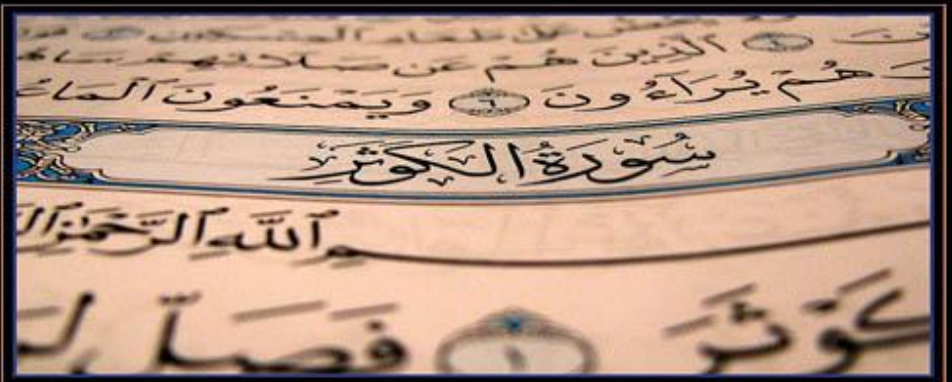 الَّذِينَ هُمْ عَن صَلَاتِهِمْ سَاهُ
هُمْ يُرَآءُونَ ٦ وَيَمْنَعُونَ ٱلْمَاعُ
سُورَةُ الْكَوْثَرِ
ٱللَّهِ ٱلرَّحْمَٰنِ ٱل
كَوْثَرَ ١ فَصَلِّ لِرَ